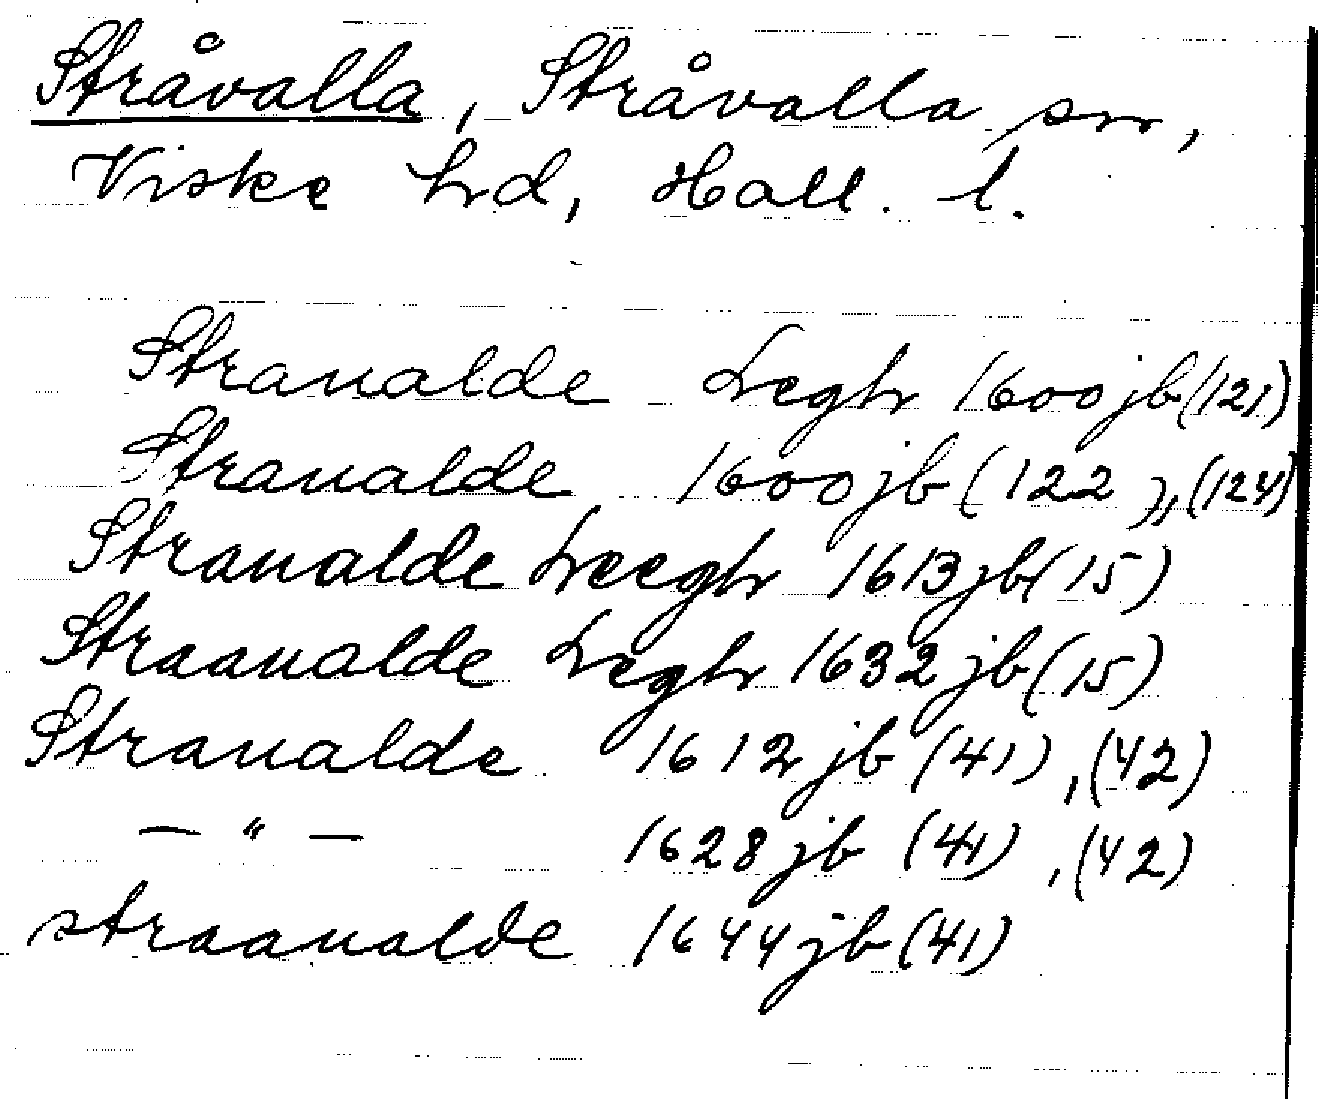 Stråvalla, Stråvalla sn,
Viske hd, Hall. l.
Straualde Legh 1600 jb (121)
Straualde 1600 jb (122), (124)
Straualde Leegh 1613 jb (15)
Straaualde Legh 1632 jb (15)
Straualde 1612 jb (41), (42)
— " — 1628 jb (41), (42)
straaualde 1644 jb (41)